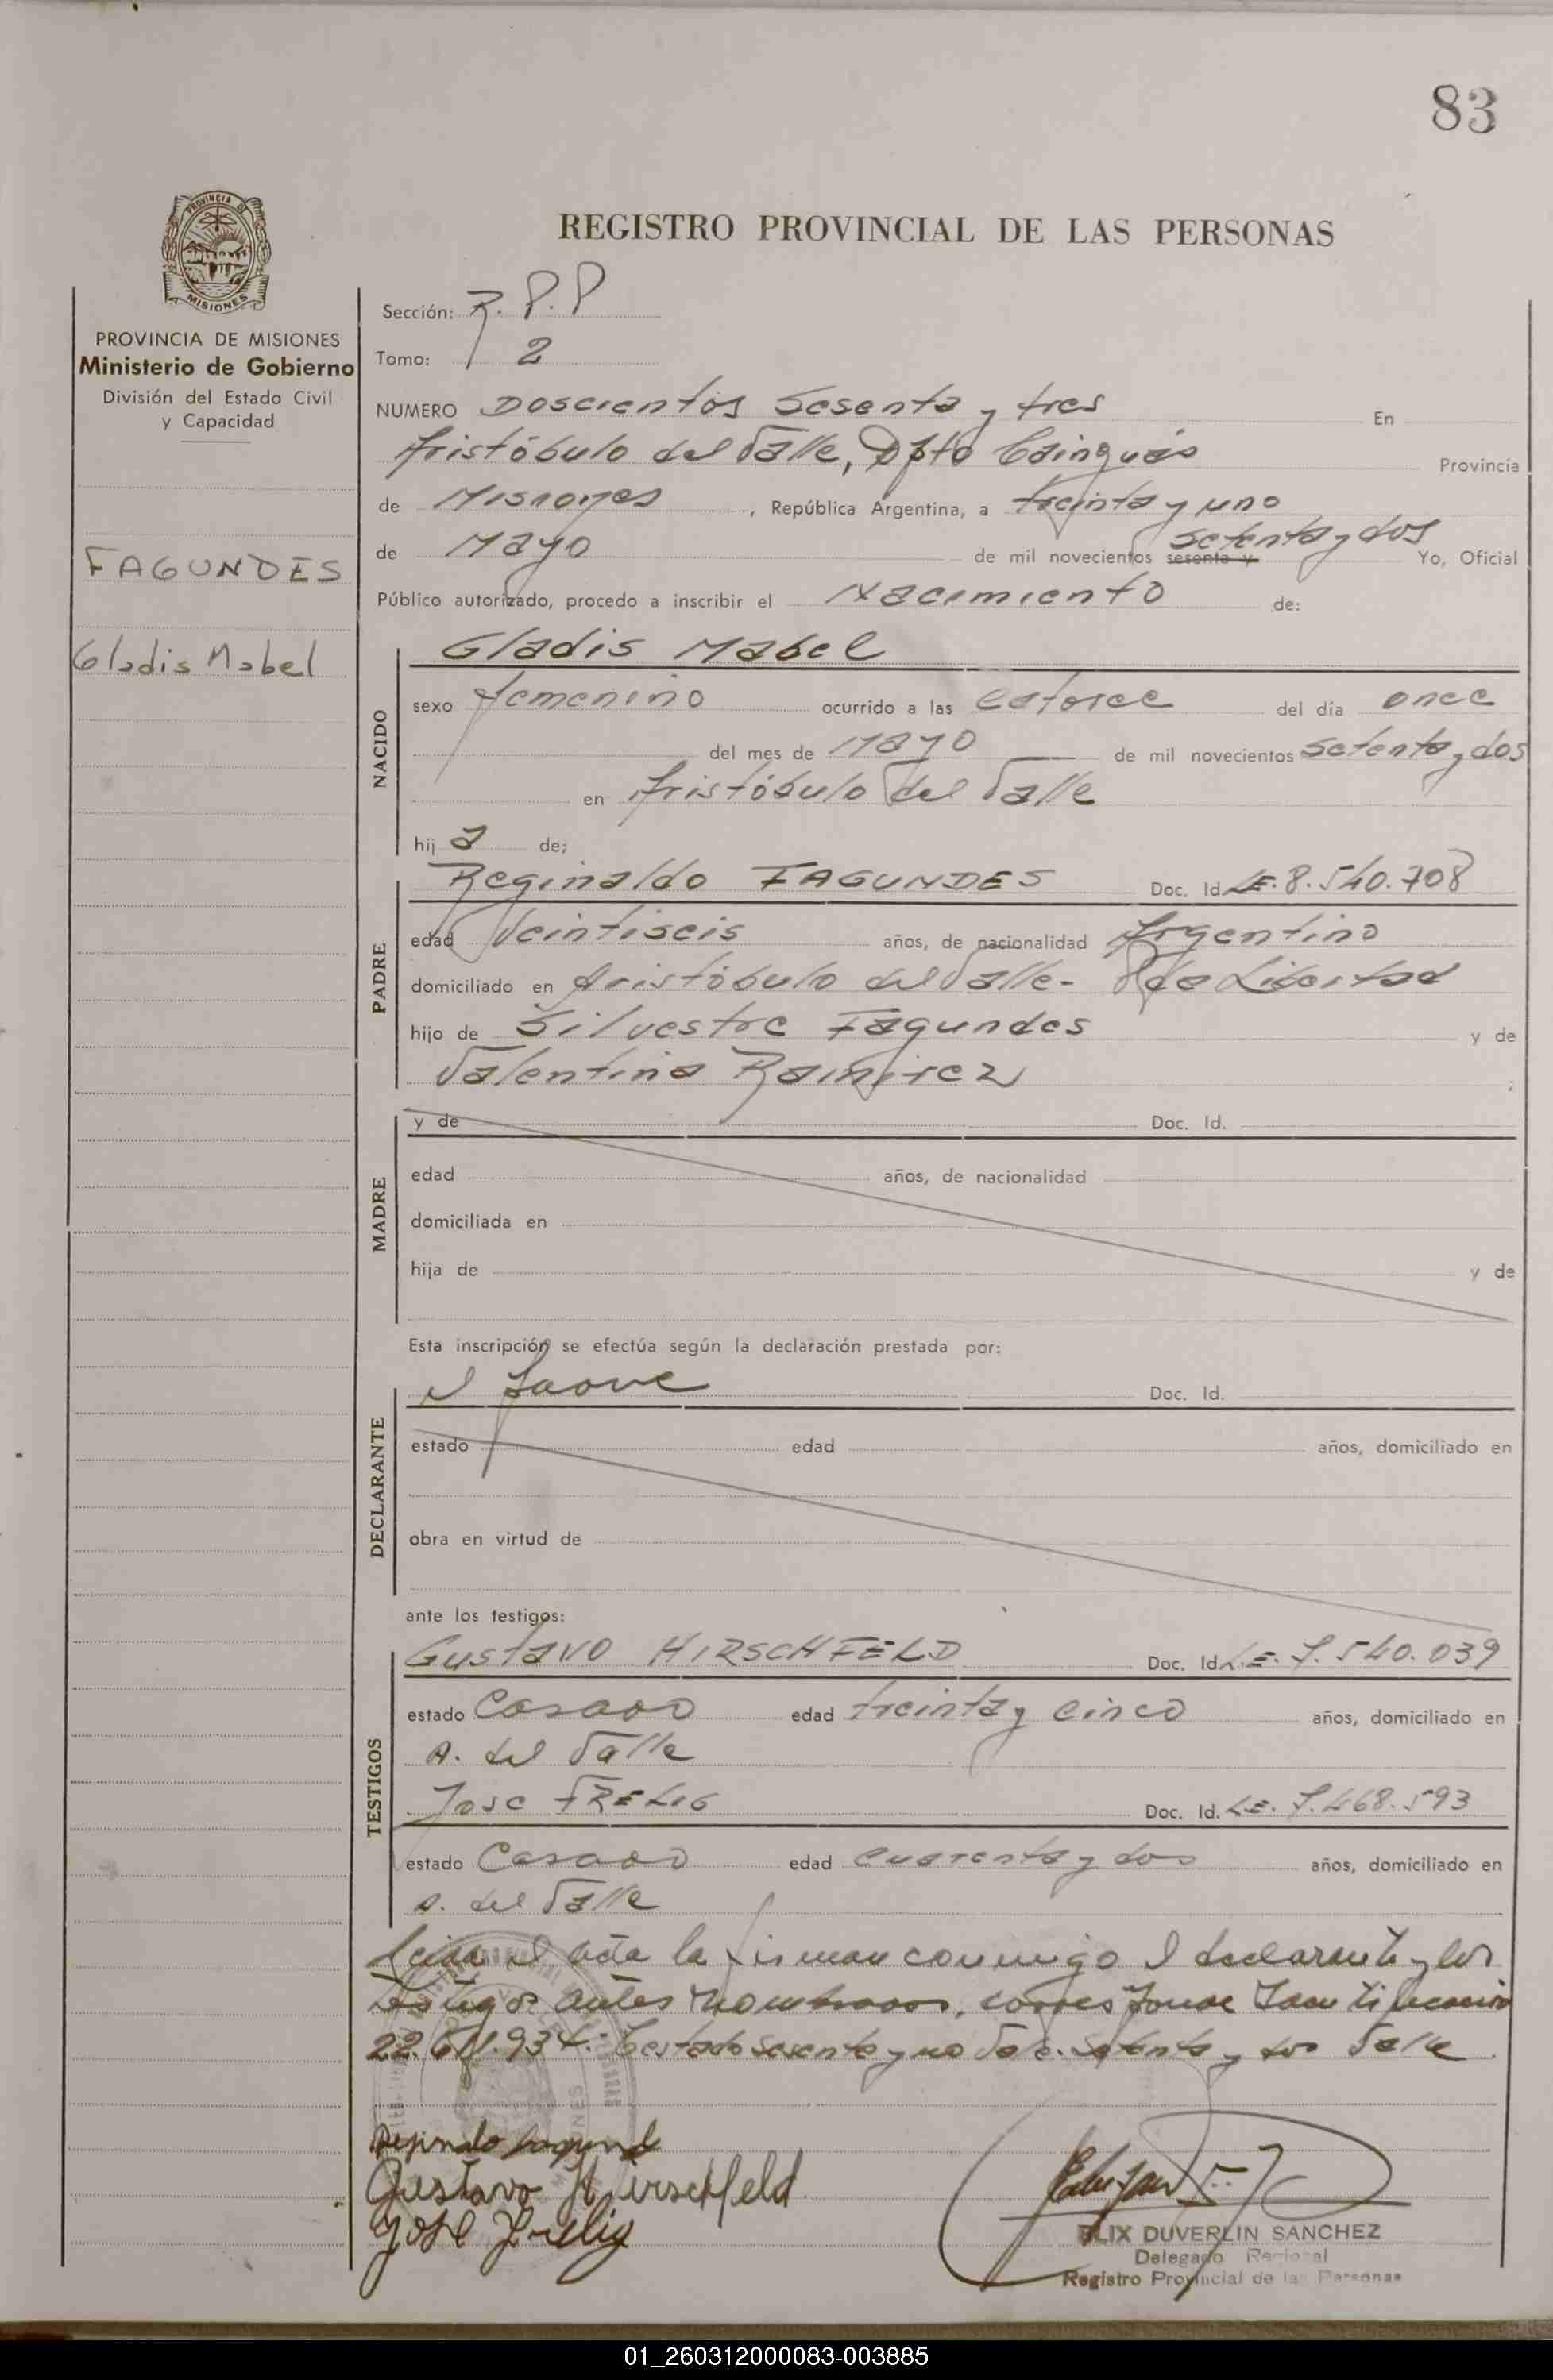 83
PROVINCIA DE
MISIONES
REGISTRO PROVINCIAL DE LAS PERSONAS
PROVINCIA DE MISIONES
Ministerio de Gobierno
División del Estado Civil
y Capacidad
FAGUNDES
Gladis Mabel
Sección: R. P. P
Tomo: 2
NUMERO Doscientos Sesenta y tres En
Aristóbulo del Valle, Dpto Cainguás Provincia
de Misiones, República Argentina, a treinta y uno
de Mayo de mil novecientos sesenta y setenta y dos Yo, Oficial
Público autorizado, procedo a inscribir el Nacimiento de:
NACIDO
Gladis Mabel
sexo femenino ocurrido a las catorce del día once
del mes de Mayo de mil novecientos setenta y dos
en Aristóbulo del Valle
hij a de;
PADRE
Reginaldo FAGUNDES Doc. Id. L.E. 8.540.708
edad Veintiseis años, de nacionalidad Argentino
domiciliado en Aristóbulo del Valle- Pda Libertad
hijo de Silvestre Fagundes y de
Valentina Ramirez ;
MADRE
y de Doc. Id.
edad años, de nacionalidad
domiciliada en
hija de y de
Esta inscripción se efectúa según la declaración prestada por:
DECLARANTE
el Padre Doc. Id.
estado edad años, domiciliado en
obra en virtud de
ante los testigos:
TESTIGOS
Gustavo HIRSCHFELD Doc. Id. L.E. 7.540.039
estado Casado edad treinta y cinco años, domiciliado en
A. del Valle
Jose FRELIG Doc. Id. L.E. 7.468.593
estado Casado edad cuarenta y dos años, domiciliado en
A. del Valle
Leida el acta la firman conmigo el declarante y los
testigos antes nombrados, corresponde Identificación
22.611.934: Testado sesenta y no Vale. Setenta y dos Valle
Gustavo Hirschfeld
José Frelig
ELIX DUVERLIN SANCHEZ
Delegado Regional
Registro Provincial de las Personas
01_260312000083-003885